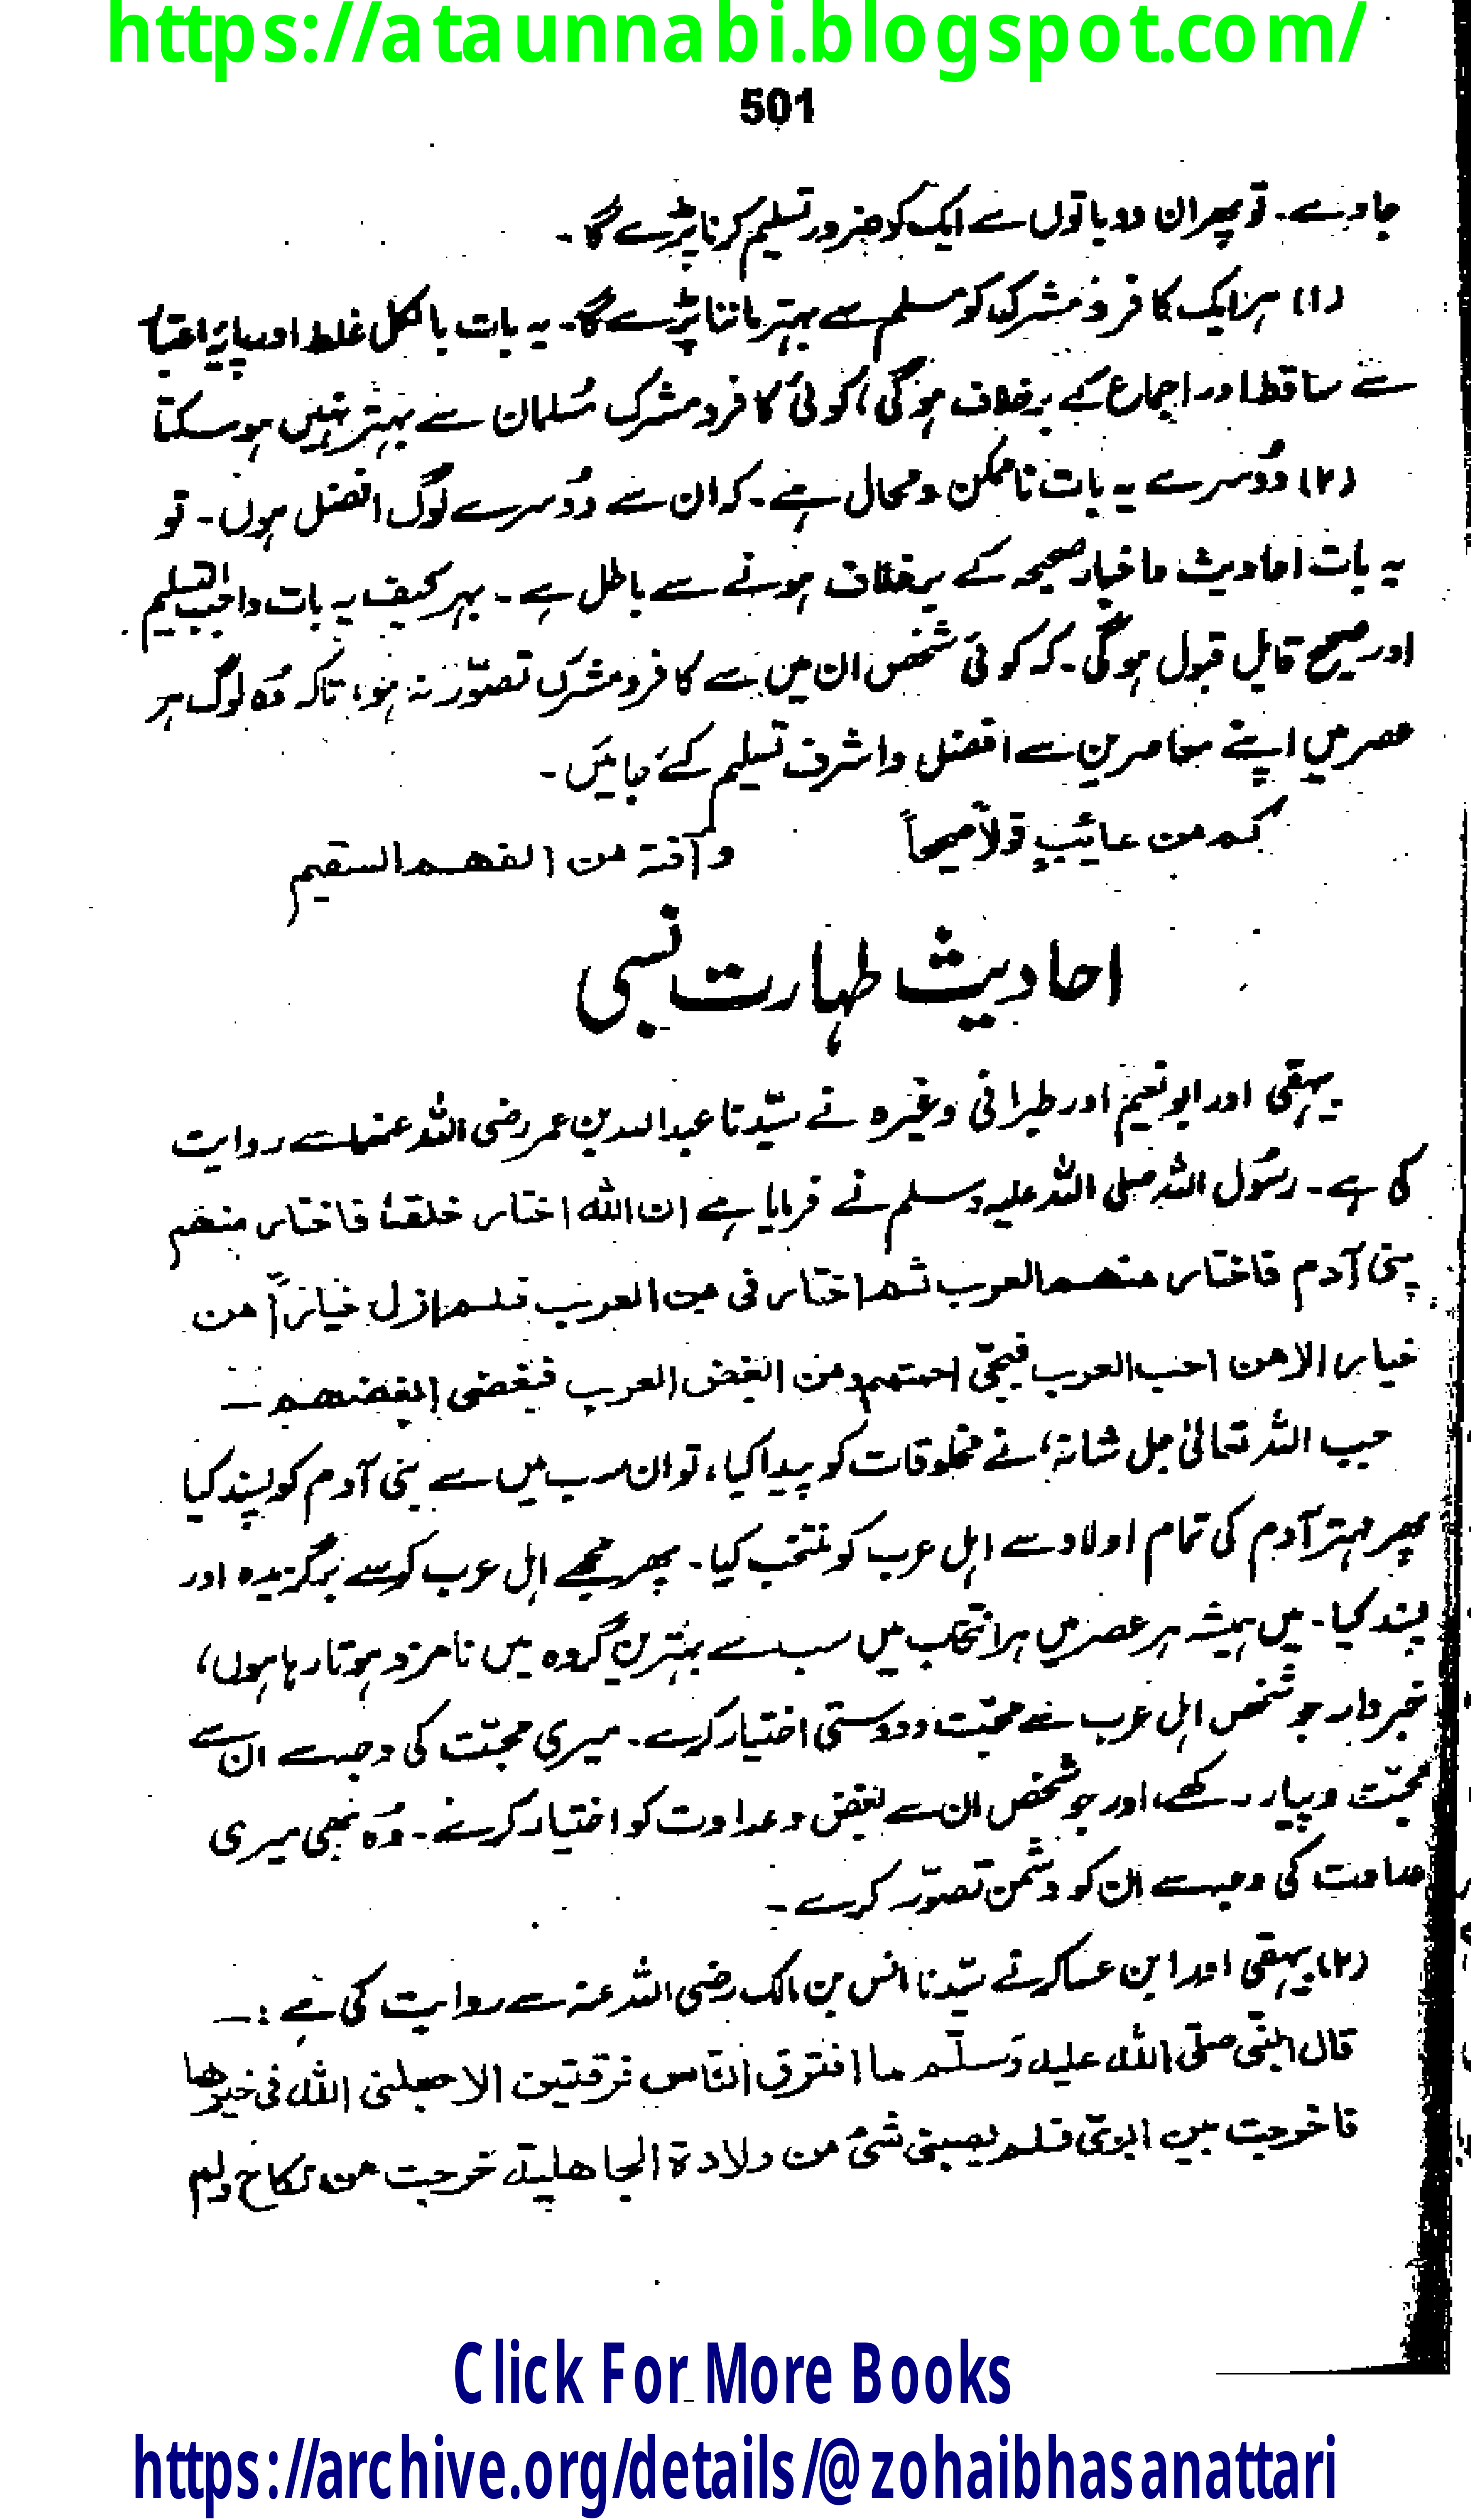 https://ataunnabi.blogspot.com/
501
جاوے۔ تو پھر ان دو باتوں سے ایک کو ضرور تسلیم کرنا پڑے گا۔
(۱) ہر ایک کافر و مشرک کو مسلم سے بہتر ماننا پڑے گا۔ یہ بات بالکل غلط اور پایۂ اعتبار
سے ساقط اور اجماع کے برخلاف ہوگی، کوئی کافر و مشرک مُسلمان سے بہتر نہیں ہو سکتا
(۲) دُوسرے یہ بات ناممکن و محال ہے۔ کہ ان سے دُوسرے لوگ افضل ہوں۔ تو
یہ بات احادیث و اخبار صحیحہ کے برخلاف ہونے سے باطل ہے۔ بہر کیف یہ بات واجب التسلیم
اور صحیح قابل قبول ہوگی۔ کہ کوئی شخص ان میں سے کافر و مشرک تصوّر نہ ہو، تاکہ وُہ لوگ ہر
عصر میں اپنے معاصرین سے افضل و اشرف تسلیم کئے جائیں۔
کم من عائبٍ قولاً صحیحاً وآفتہ من الفھم السقیم
احادیث طہارت نسبی
بیہقی اور ابونعیم اور طبرانی وغیرہ نے سیّدنا عبداللہ بن عمر رضی اللہ عنھما سے روایت
کی ہے۔ رسُول اللہ صلی اللہ علیہ وسلم نے فرمایا ہے ان اللہ اختار خلقہٗ فاختار منھم
بنی آدم فاختار منھم العرب ثم اختار نی من العرب فلم ازل خیاراً من
خیار الا من احب العرب فبحبّی احبھم ومن ابغض العرب فبغضی ابغضھم ــ
جب اللہ تعالیٰ جل شانہٗ نے مخلوقات کو پیدا کیا، تو ان سب میں سے بنی آدم کو پسند کیا
پھر مہتر آدم کی تمام اولاد سے اہل عرب کو منتخب کیا۔ پھر مجھے اہل عرب سے برگزیدہ اور
پسند کیا۔ میں ہمیشہ ہر عصر میں ہر انتخاب میں سب سے بہترین گروہ میں نامزد ہوتا رہا ہوں،
خبردار جو شخص اہل عرب سے محبّت و دوستی اختیار کرے۔ میری محبّت کی وجہ سے ان سے
محبّت و پیار رکھے، اور جو شخص ان سے بغض و عداوت کو اختیار کرے۔ وُہ بھی میری
عداوت کی وجہ سے ان کو دشمن تصوّر کرے۔
(۲) بیہقی اور ابن عساکر نے سیّدنا انس بن مالک رضی اللہ عنہ سے روایت کی ہے :ــ
قال النبی صلّی اللہ علیہ وَسلّم ما افترق النّاس فرقتین الا جعلنی اللہ فی خیرھا
فاخرجت بین ابویّ فلم یصبنی شئ من ولادۃ الجاھلیۃ خرجت من نکاح ولم
Click For More Books
https://archive.org/details/@zohaibhasanattari